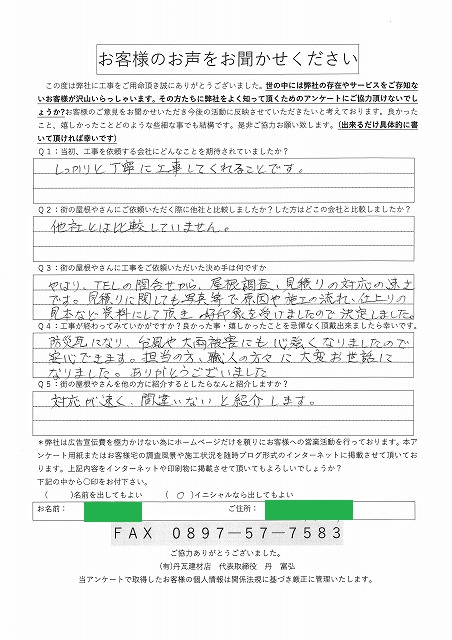 お客様のお声をお聞かせください
この度は弊社に工事をご用命頂き誠にありがとうございました。世の中には弊社の存在やサービスをご存知な
いお客様が沢山いらっしゃいます。その方たちに弊社をよく知って頂くためのアンケートにご協力頂けないでし
ょうか?お客様のご意見をお聞かせいただき今後の活動に反映させていただきたいと考えております。良かった
こと、嬉しかったことどのような些細な事でも結構です。是非ご協力お願い致します。(出来るだけ具体的に書
いて頂ければ幸いです)
Q1:当初、工事を依頼する会社にどんなことを期待されていましたか?
しっかりと丁寧に工事してくれることです。
Q2:街の屋根やさんにご依頼いただく際に他社と比較しましたか?した方はどこの会社と比較しましたか?
他社とは比較していません。
Q3:街の屋根やさんに工事をご依頼いただいた決め手は何ですか
やはり、TELの問合せから、屋根調査、見積りの対応の速さ
です。見積りに関しても写真等で原因や施工の流れ、仕上りの
見本など資料にして頂き 好印象を受けましたので決定しました。
Q4:工事が終わってみていかがですか?良かった事・嬉しかったことを忌憚なく頂戴出来ましたら幸いです。
防災瓦になり、台風や大雨被害にも心強くなりましたので
安心できます。担当の方、職人の方々に大変お世話に
なりました。ありがとうございました
Q5:街の屋根やさんを他の方に紹介するとしたらなんと紹介しますか?
対応が速く、間違いないと紹介します。
*弊社は広告宣伝費を極力かけない為にホームページだけを頼りにお客様への営業活動を行っております。本ア
ンケート用紙またはお客様宅の調査風景や施工状況を随時ブログ形式のインターネットに掲載させて頂いてお
ります。上記内容をインターネットや印刷物に掲載させて頂いてもよろしいでしょうか?
下記の中から〇印をお付下さい。
(  )名前を出してもよい (○)イニシャルなら出してもよい
お名前: ご住所:
FAX 0897-57-7583
ご協力ありがとうございました。
(有)丹瓦建材店 代表取締役 丹 富弘
当アンケートで取得したお客様の個人情報は関係法規に基づき厳正に管理いたします。